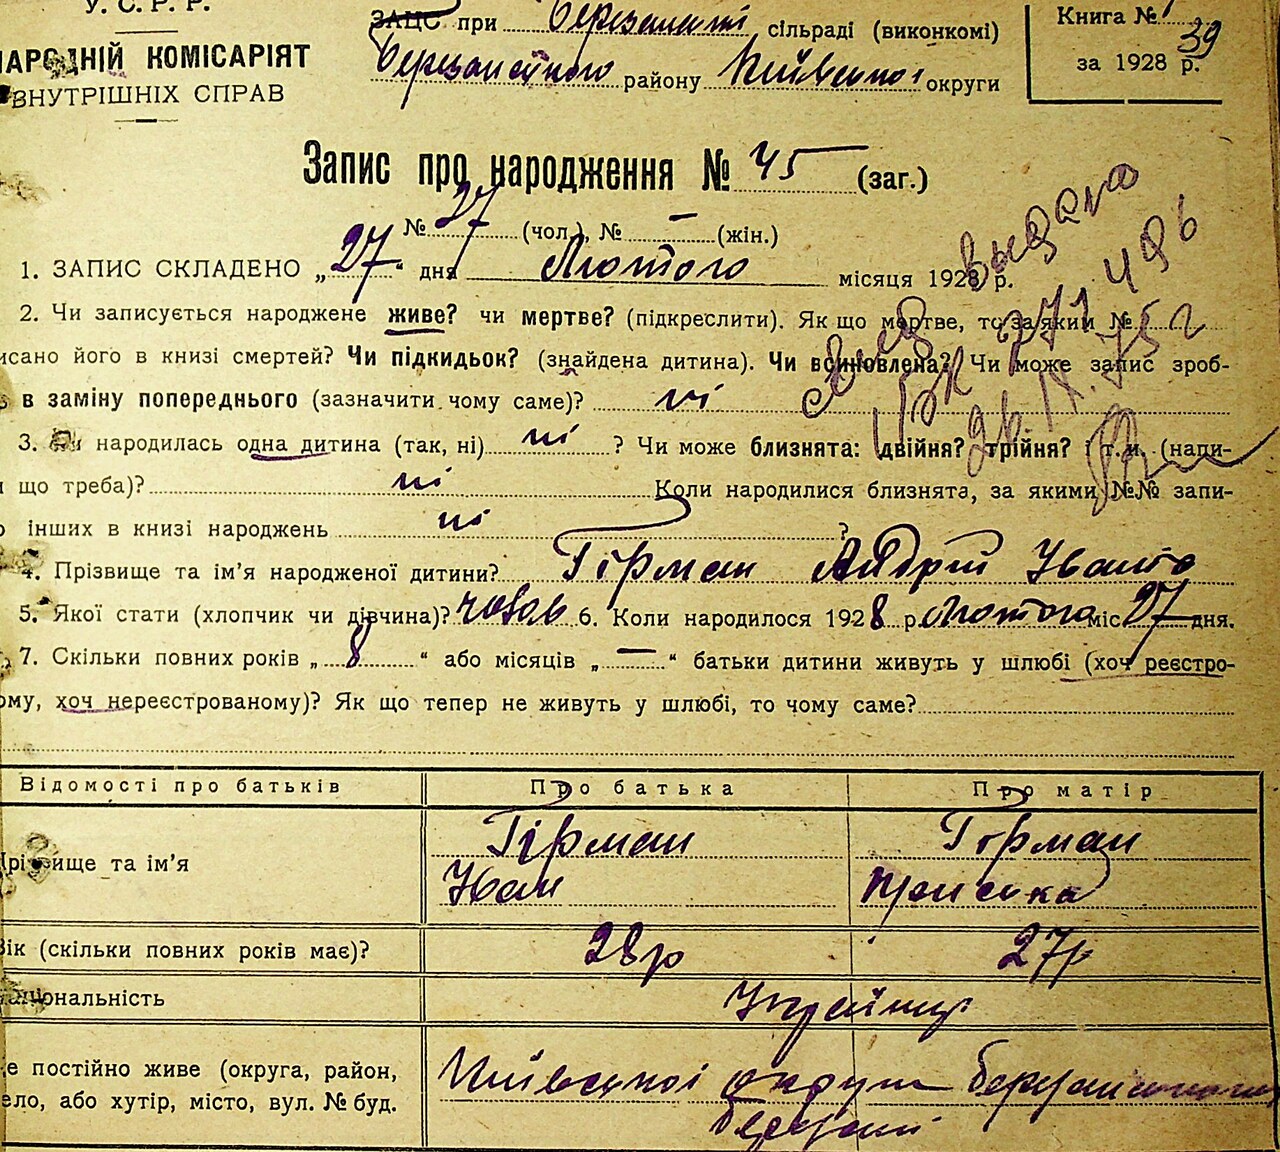 У. С. Р. Р.
НАРОДНІЙ КОМІСАРІЯТ
ВНУТРІШНІХ СПРАВ
ЗАЦС при Березанській сільраді (виконкомі)
Березанського району Київської округи
Книга № 1
39
за 1928 р.
Запис про народження № 45 (заг.)
№ 27 (чол.), № — (жін.)
1. ЗАПИС СКЛАДЕНО „27“ дня Лютого місяця 1928 р.
2. Чи записується народжене живе? чи мертве? (підкреслити). Як що мертве, то за яким №
писано його в книзі смертей? Чи підкидьок? (знайдена дитина). Чи всиновлена? Чи може запис зроб-
в заміну попереднього (зазначити чому саме)? ні
3. народилась одна дитина (так, ні) ні ? Чи може близнята: двійня? трійня? і т. и. (напи-
що треба)? ні Коли народилися близнята, за якими №№ запи-
інших в книзі народжень ні ?
4. Прізвище та ім'я народженої дитини? Гірман Андрій Іванів
5. Якої стати (хлопчик чи дівчина)? чолов 6. Коли народилося 1928 р. Лютого міс 27 дня.
7. Скільки повних років „8“ або місяців „—“ батьки дитини живуть у шлюбі (хоч реєстро-
ому, хоч нереєстрованому)? Як що тепер не живуть у шлюбі, то чому саме?
выдано
271496
26.IX.75 г
Відомості про батьків Про батька Про матір
Прізвище та ім'я Гірман Гірман
Іван Приська
Вік (скільки повних років має)? 28р 27р
Національність Українці
е постійно живе (округа, район, Київської округи Березанського
ело, або хутір, місто, вул. № буд. Березані